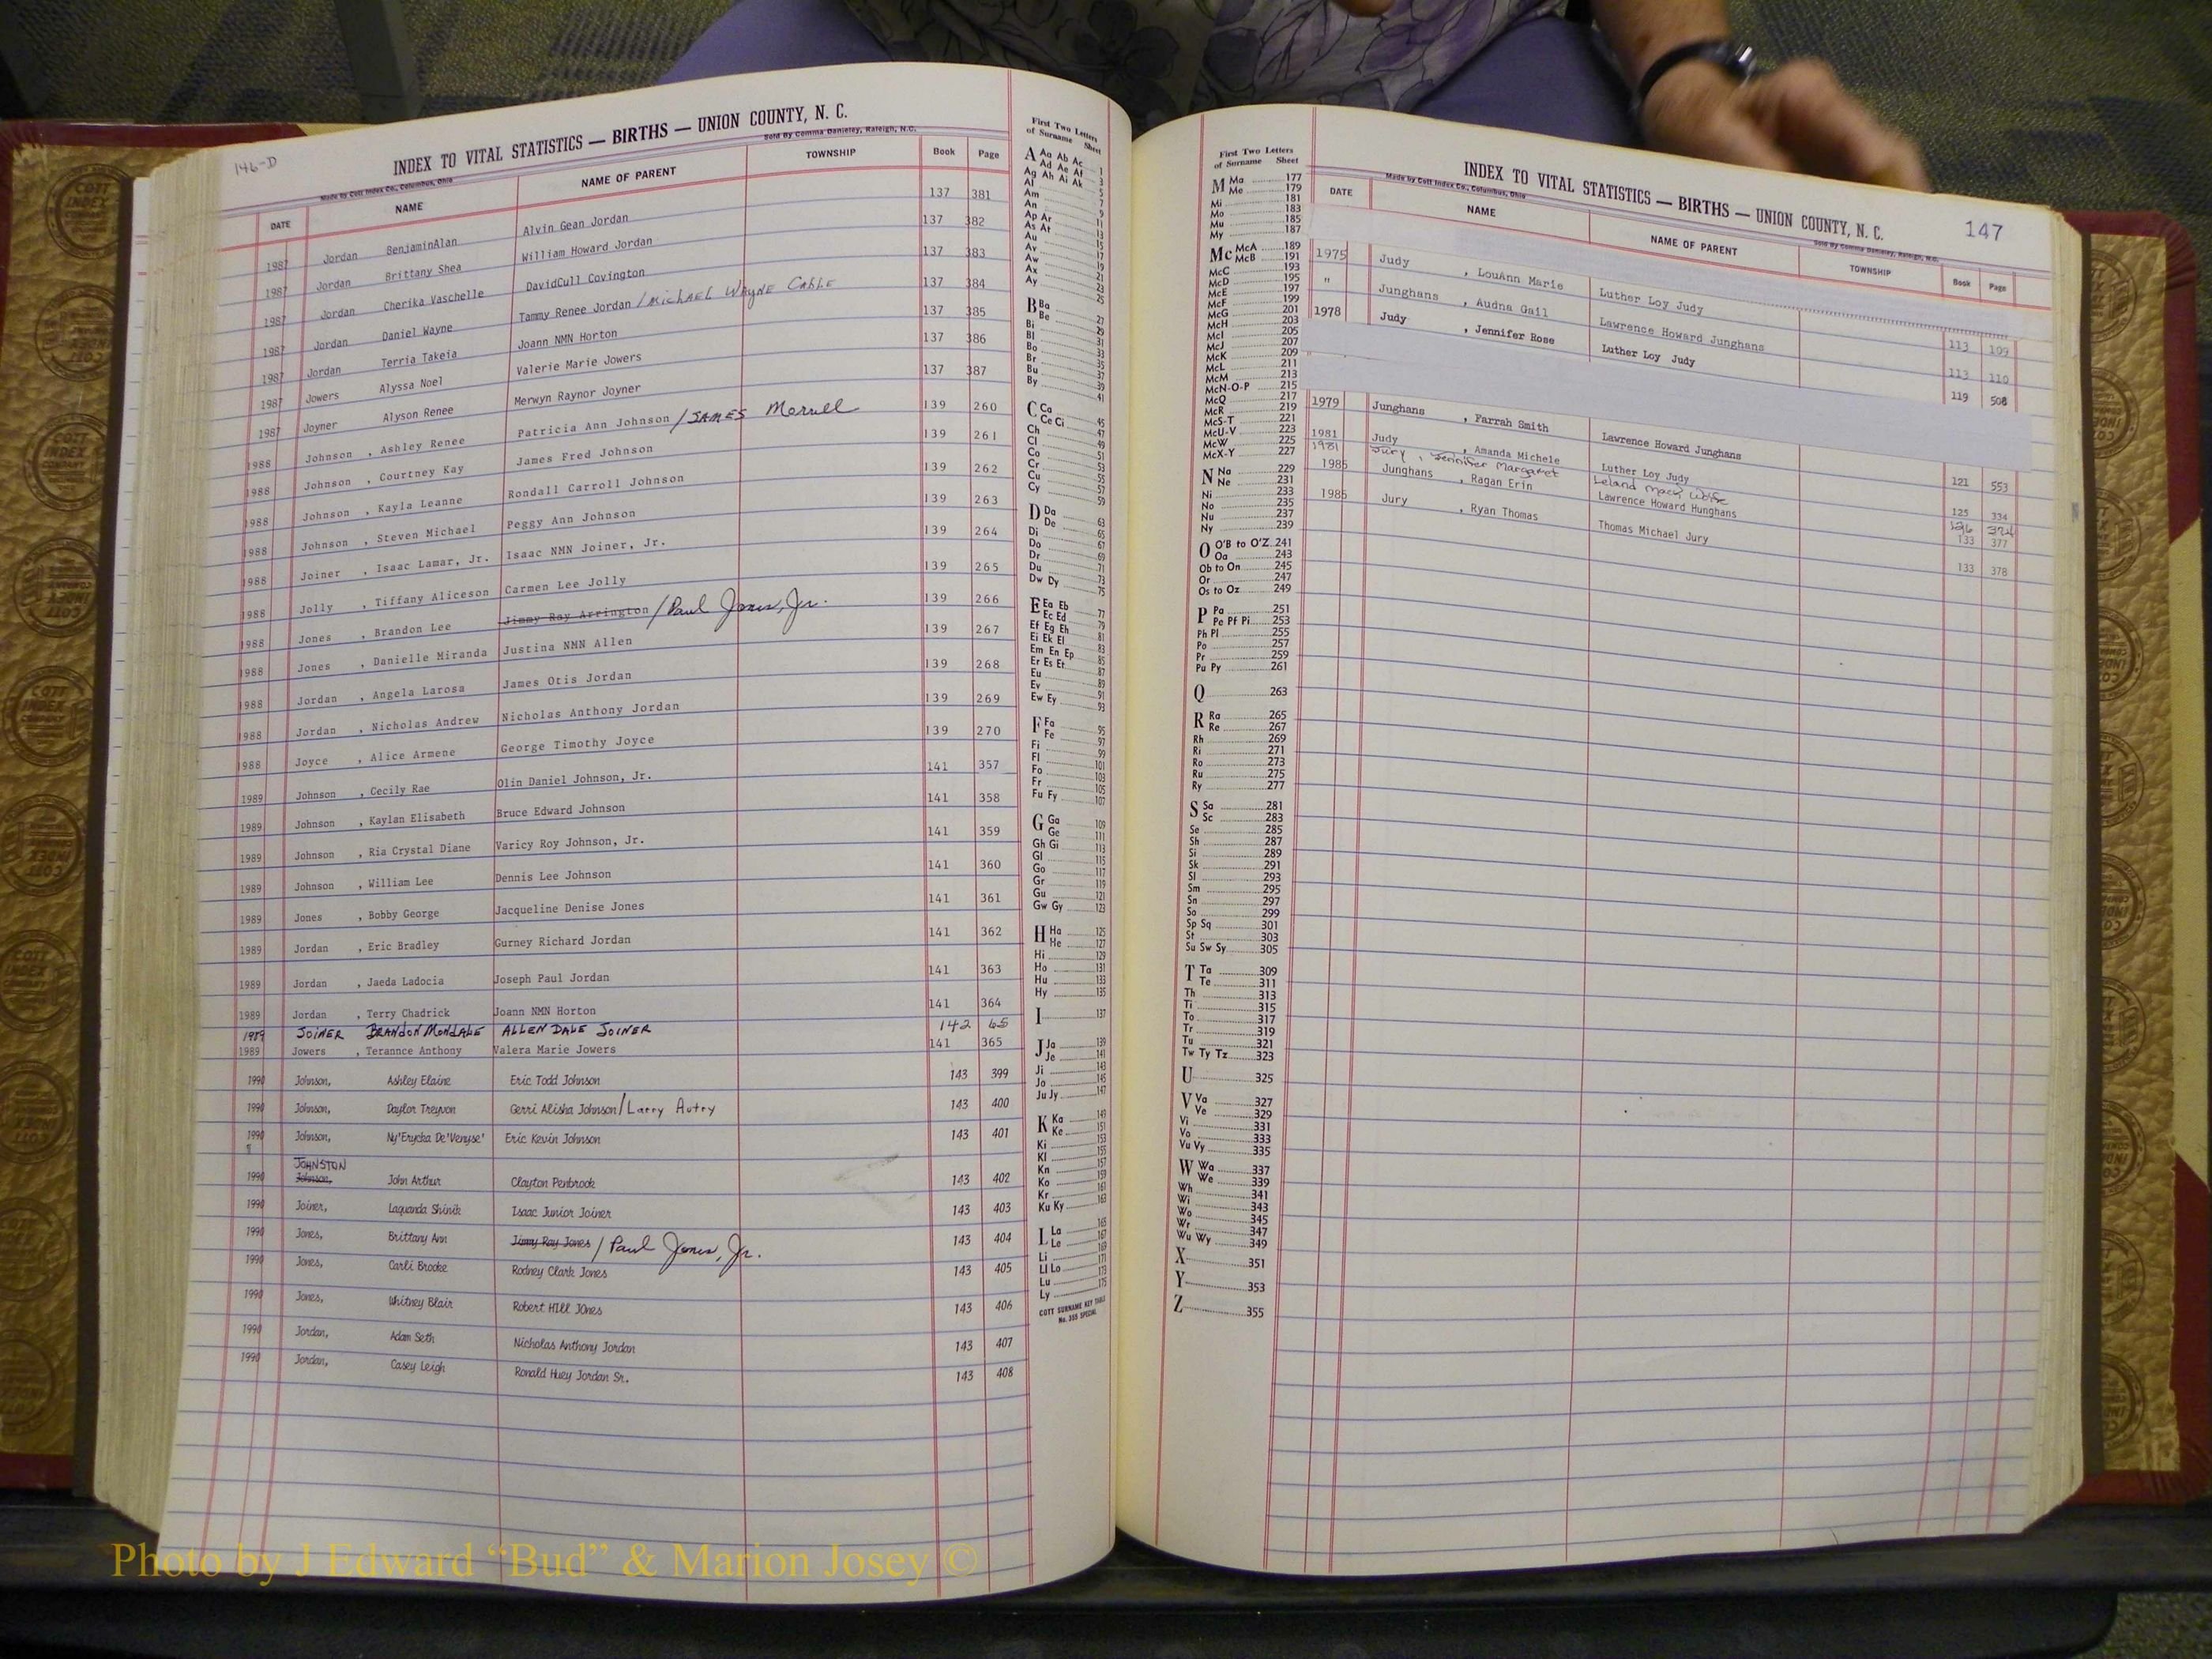 146-D
INDEX TO VITAL STATISTICS — BIRTHS — UNION COUNTY, N. C.
Made by Cott Index Co., Columbus, Ohio
Sold By Comma Danieley, Raleigh, N.C.
DATE NAME NAME OF PARENT TOWNSHIP Book Page
1987 Jordan BenjaminAlan Alvin Gean Jordan 137 381
1987 Jordan Brittany Shea William Howard Jordan 137 382
1987 Jordan Cherika Vaschelle DavidCull Covington 137 383
1987 Jordan Daniel Wayne Tammy Renee Jordan / Michael Wayne Cable 137 384
1987 Jordan Terria Takeia Joann NMN Horton 137 385
1987 Jowers Alyssa Noel Valerie Marie Jowers 137 386
1987 Joyner Alyson Renee Merwyn Raynor Joyner 137 387
1988 Johnson , Ashley Renee Patricia Ann Johnson / JAMES 139 260
1988 Johnson , Courtney Kay James Fred Johnson 139 261
1988 Johnson , Kayla Leanne Rondall Carroll Johnson 139 262
1988 Johnson , Steven Michael Peggy Ann Johnson 139 263
1988 Joiner , Isaac Lamar, Jr. Isaac NMN Joiner, Jr. 139 264
1988 Jolly , Tiffany Aliceson Carmen Lee Jolly 139 265
1988 Jones , Brandon Lee Jimmy Ray Arrington / Paul Jones, Jr. 139 266
1988 Jones , Danielle Miranda Justina NMN Allen 139 267
1988 Jordan , Angela Larosa James Otis Jordan 139 268
1988 Jordan , Nicholas Andrew Nicholas Anthony Jordan 139 269
1988 Joyce , Alice Armene George Timothy Joyce 139 270
1989 Johnson , Cecily Rae Olin Daniel Johnson, Jr. 141 357
1989 Johnson , Kaylan Elisabeth Bruce Edward Johnson 141 358
1989 Johnson , Ria Crystal Diane Varicy Roy Johnson, Jr. 141 359
1989 Johnson , William Lee Dennis Lee Johnson 141 360
1989 Jones , Bobby George Jacqueline Denise Jones 141 361
1989 Jordan , Eric Bradley Gurney Richard Jordan 141 362
1989 Jordan , Jaeda Ladocia Joseph Paul Jordan 141 363
1989 Jordan , Terry Chadrick Joann NMN Horton 141 364
1989 JOINER BRANDON MONDALE ALLEN DALE JOINER 142 65
1989 Jowers , Terannce Anthony Valera Marie Jowers 141 365
1990 Johnson, Ashley Elaine Eric Todd Johnson 143 399
1990 Johnson, Daylor Treyvon Gerri Alisha Johnson/Larry Autry 143 400
1990 Johnson, Ny'Erycka De'Venyse' Eric Kevin Johnson 143 401
JOHNSTON
1990 Johnson, John Arthur Clayton Penbrook 143 402
1990 Joiner, Laquanda Shinik Isaac Junior Joiner 143 403
1990 Jones, Brittany Ann Jimmy Ray Jones / Paul Jones, Jr. 143 404
1990 Jones, Carli Brooke Rodney Clark Jones 143 405
1990 Jones, Whitney Blair Robert HIll JOnes 143 406
1990 Jordan, Adam Seth Nicholas Anthony Jordan 143 407
1990 Jordan, Casey Leigh Ronald Huey Jordan Sr. 143 408
First Two Letters
of Surname Sheet
A Aa Ab Ac 1
Ad Ae Af 3
Ag Ah Ai Ak 5
Al 7
Am 9
An 11
Ap Ar
As At
Au
Av
Aw
Ax
Ay 25
B Ba 27
Be 29
Bi 31
Bl 33
Bo 35
Br 37
Bu 39
By 41
C Ca 45
Ce Ci 47
Ch 49
Cl 51
Co 53
Cr 55
Cu 57
Cy 59
D Da 63
De 65
Di 67
Do 69
Dr 71
Du 73
Dw Dy 75
E Ea Eb 77
Ec Ed 79
Ef Eg Eh 81
Ei Ek El 83
Em En Ep 85
Er Es Et 87
Eu 89
Ev 91
Ew Ey 93
F Fa 95
Fe 97
Fi 99
Fl 101
Fo 103
Fr 105
Fu Fy 107
G Ga 109
Ge 111
Gh Gi 113
Gl 115
Go 117
Gr 119
Gu 121
Gw Gy 123
H Ha 125
He 127
Hi 129
Ho 131
Hu 133
Hy 135
I 137
J Ja 139
Je 141
Ji 143
Jo 145
Ju Jy 147
K Ka 149
Ke 151
Ki 153
Kl 155
Kn 157
Ko 159
Kr 161
Ku Ky 163
L La 165
Le 167
Li 169
Ll Lo 171
Lu 173
Ly 175
COTT SURNAME KEY TABLE
No. 355 SPECIAL
First Two Letters
of Surname Sheet
M Ma 177
Me 179
Mi 181
Mo 183
Mu 185
My 187
Mc McA 189
McB 191
McC 193
McD 195
McE 197
McF 199
McG 201
McH 203
McI 205
McJ 207
McK 209
McL 211
McM 213
McN-O-P 215
McQ 217
McR 219
McS-T 221
McU-V 223
McW 225
McX-Y 227
N Na 229
Ne 231
Ni 233
No 235
Nu 237
Ny 239
O O'B to O'Z 241
Oa 243
Ob to On 245
Or 247
Os to Oz 249
P Pa 251
Pe Pf Pi 253
Ph Pl 255
Po 257
Pr 259
Pu Py 261
Q 263
R Ra 265
Re 267
Rh 269
Ri 271
Ro 273
Ru 275
Ry 277
S Sa 281
Sc 283
Se 285
Sh 287
Si 289
Sk 291
Sl 293
Sm 295
Sn 297
So 299
Sp Sq 301
St 303
Su Sw Sy 305
T Ta 309
Te 311
Th 313
Ti 315
To 317
Tr 319
Tu 321
Tw Ty Tz 323
U 325
V Va 327
Ve 329
Vi 331
Vo 333
Vu Vy 335
W Wa 337
We 339
Wh 341
Wi 343
Wo 345
Wr 347
Wu Wy 349
X 351
Y 353
Z 355
147
INDEX TO VITAL STATISTICS — BIRTHS — UNION COUNTY, N. C.
Made by Cott Index Co., Columbus, Ohio
Sold By Comma Danieley, Raleigh, N.C.
DATE NAME NAME OF PARENT TOWNSHIP Book Page
1975 Judy , LouAnn Marie Luther Loy Judy 113 109
" Junghans , Audna Gail Lawrence Howard Junghans 113 110
1978 Judy , Jennifer Rose Luther Loy Judy 119 508
1979 Junghans , Farrah Smith Lawrence Howard Junghans 121 553
1981 Judy , Amanda Michele Luther Loy Judy 125 334
1981 Jury , Jennifer Margaret Leland Mack 126 324
1985 Junghans , Ragan Erin Lawrence Howard Hunghans 133 377
1985 Jury , Ryan Thomas Thomas Michael Jury 133 378
Photo by J Edward “Bud” & Marion Josey ©